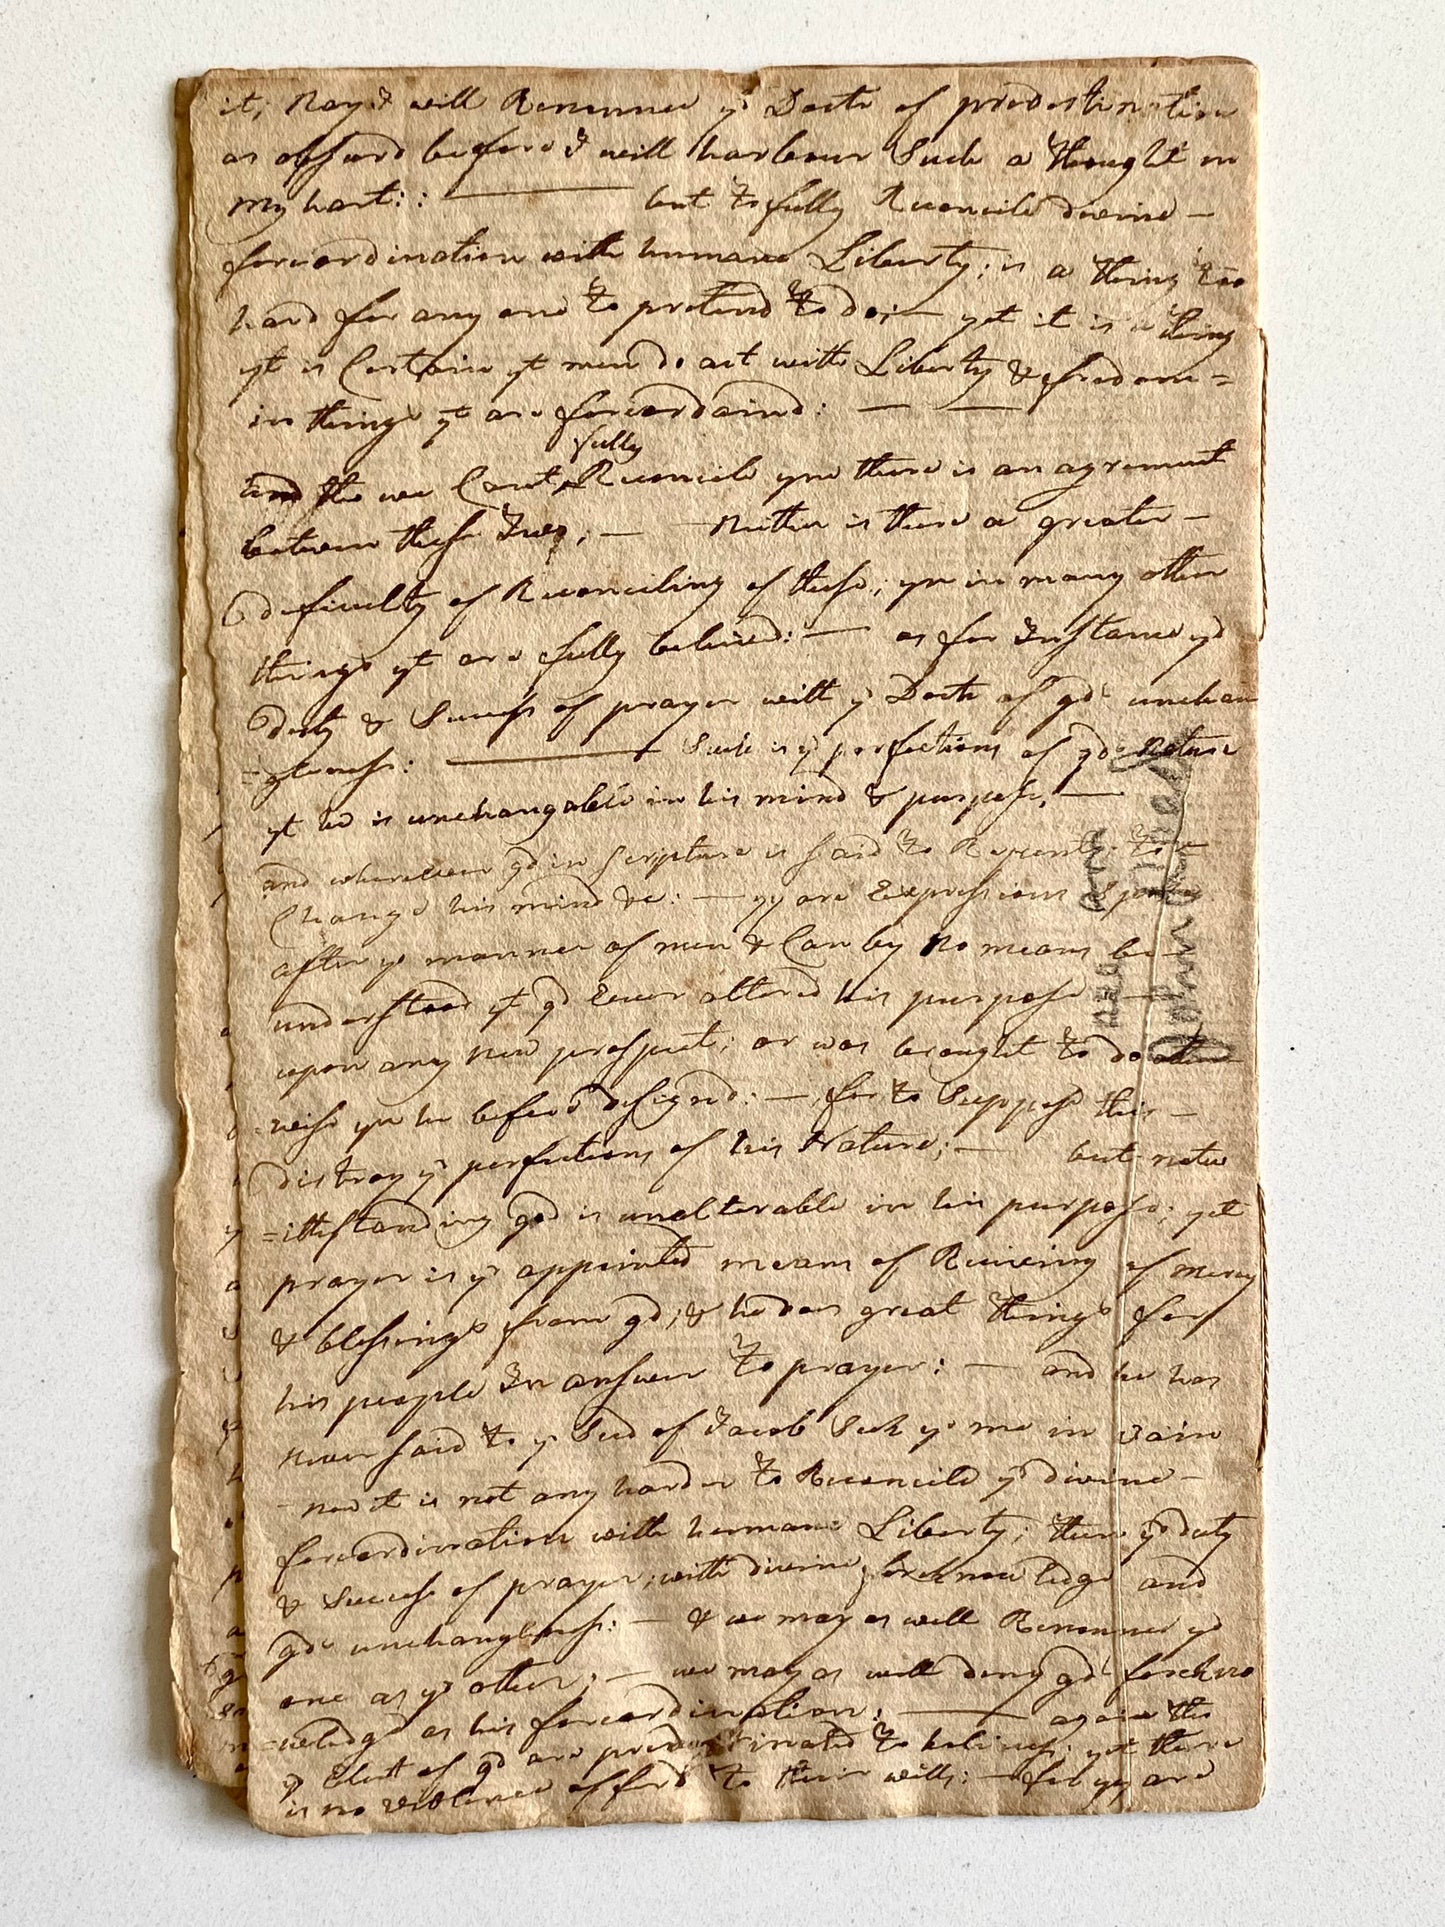 it; Nay I will Renounce ye Doctr of predestination
as absurd before I will harbour Such a thought in
my hart:: —— but to fully Reconcile divine –
foreordination with humane Liberty; is a thing too
hard for any one to pretend to do; — yet it is a thing
yt is Certain yt men do act with Liberty & fredom =
in things yt are foreordaind: — —
fully
and tho we Cant Reconcile ym there is an agrement
between these Two; — Neither is there a greater –
dificulty of Reconciling of these; yn in many other
things yt are fully believed: — as for Instance ye
duty & Success of prayer with ye Doctr of gds unchan
=gleness: —— Such is ye perfections of gds Nature
yt he is unchangable in his mind & purpose, —
and whereever gd in Scripture is said to Repent; to
Change his mind &c: — yy are Expressions
after ye manner of men & Can by no means be
understood yt gd Ever altered his purpose —
upon any new prospect; or was brought to do other
=wise yn he before designd: — for to Suppose this –
distroy ye perfections of his Nature; — but notw
=ithstanding god is unalterable in his purpose; yet
prayer is ye appointed means of Reciving of mercy
& blessings from gd; & he does great things for
his people In answer to prayer: — and he has
never said to ye Seed of Jacob Seek ye me in vain
– now it is not any harder to Reconcile ye divine –
foreordination with humane Liberty; then ye duty
& Success of prayer; with divine foreknowledge and
gds unchangleness: — & we may as well Renounce ye
one as ye other; — we may as well deny gds forekno
=weledge as his foreordination: —— again tho
ye Elect of gd are predestinated to holiness; yet there
is no violence offerd to their wills: — for yy are